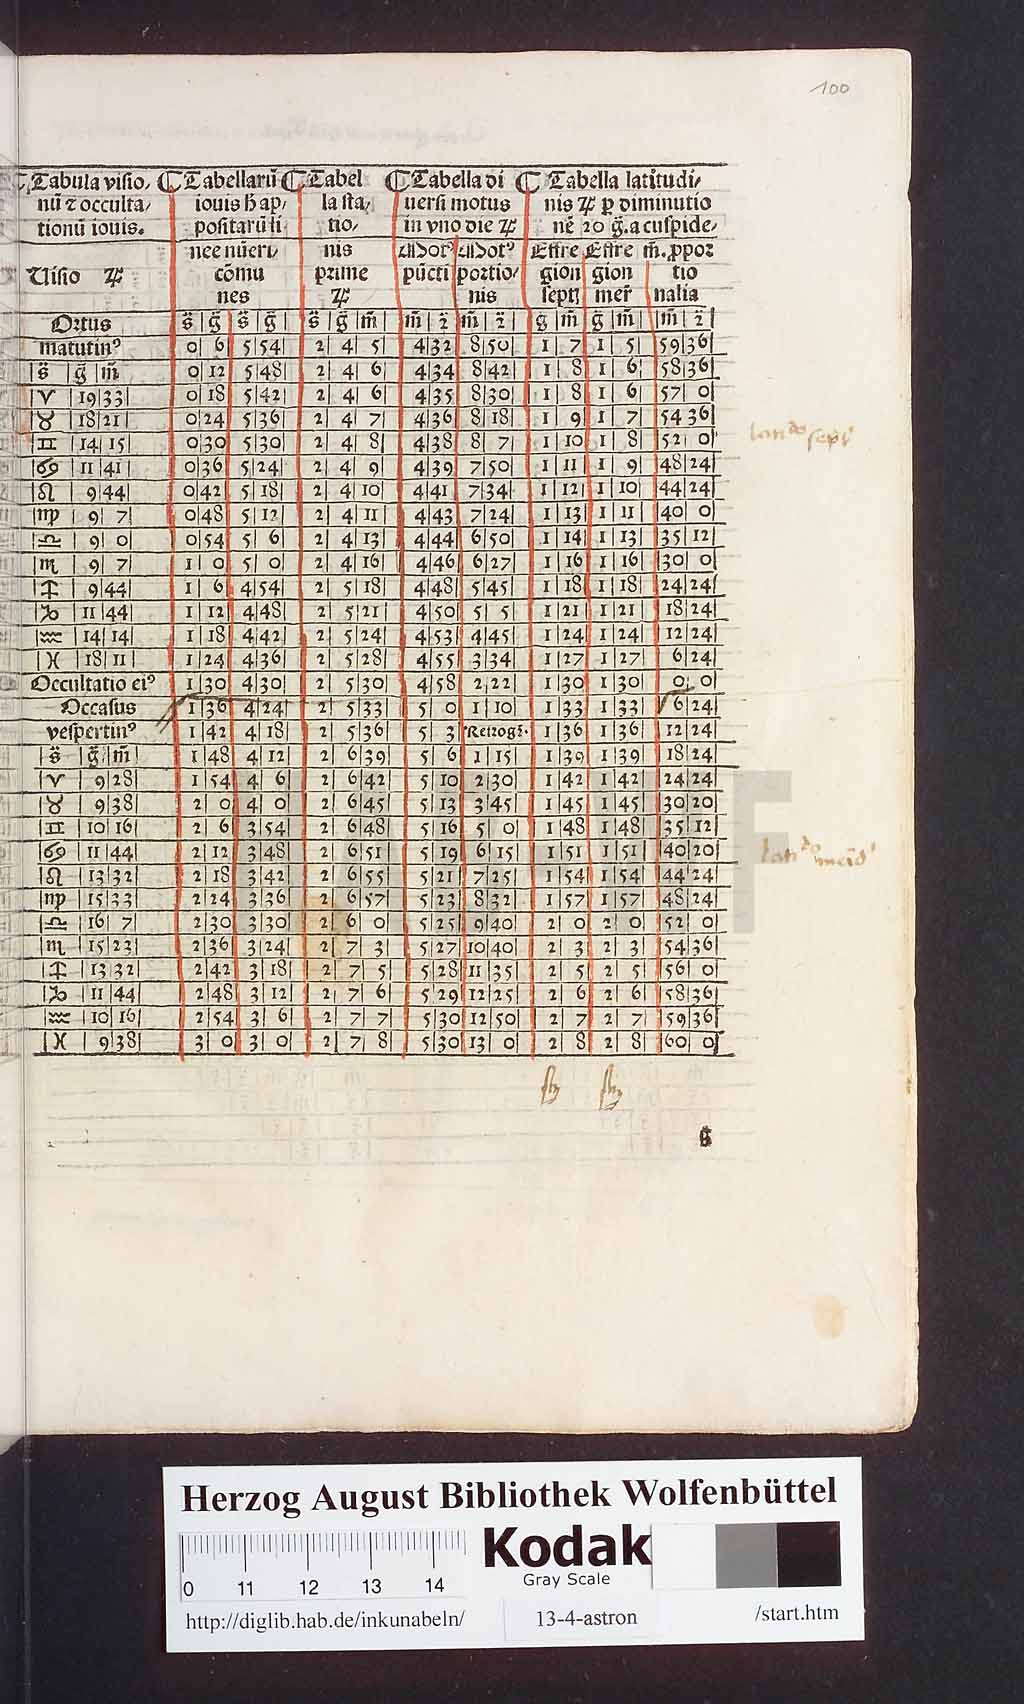 100
Tabula visio, Tabellarū Tabel Tabella di Tabella latitudi,
nū ⁊ occulta, iouis h̄ ap, la sta, uersi motus nis ♃ ꝑ diminutio
tionū iouis. positarū li tio, in vno die ♃ nē 20 g̈. a cuspide,
nee nūeri, nis Mot⁹ Mot⁹ Eſtre Eſtre m̄. ꝓpor
Uisio ♃ cōmu prime pūcti portio, gion gion tio
nes ♃ nis sept mer̄ nalia
Ortus s̈ g̈ s̈ g̈ s̈ g̈ m̄ m̄ 2̄ m̄ 2̄ g m̄ g̈ m̄ m̄ 2̄
matutin⁹ 0 6 5 54 2 4 5 4 32 8 50 1 7 1 5 59 36
s̈ g̈ m̄ 0 12 5 48 2 4 6 4 34 8 42 1 8 1 6 58 36
♈ 19 33 0 18 5 42 2 4 6 4 35 8 30 1 8 1 6 57 0
♉ 18 21 0 24 5 36 2 4 7 4 36 8 18 1 9 1 7 54 36
♊ 14 15 0 30 5 30 2 4 8 4 38 8 7 1 10 1 8 52 0
♋ 11 41 0 36 5 24 2 4 9 4 39 7 50 1 11 1 9 48 24
♌ 9 44 0 42 5 18 2 4 10 4 41 7 34 1 12 1 10 44 24
♍ 9 7 0 48 5 12 2 4 11 4 43 7 24 1 13 1 11 40 0
♎ 9 0 0 54 5 6 2 4 13 4 44 6 50 1 14 1 13 35 12
♏ 9 7 1 0 5 0 2 4 16 4 46 6 27 1 16 1 16 30 0
♐ 9 44 1 6 4 54 2 5 18 4 48 5 45 1 18 1 18 24 24
♑ 11 44 1 12 4 48 2 5 21 4 50 5 5 1 21 1 21 18 24
♒ 14 14 1 18 4 42 2 5 24 4 53 4 45 1 24 1 24 12 24
♓ 18 11 1 24 4 36 2 5 28 4 55 3 34 1 27 1 27 6 24
Occultatio ei⁹ 1 30 4 30 2 5 30 4 58 2 22 1 30 1 30 0 0
Occasus 1 36 4 24 2 5 33 5 0 1 10 1 33 1 33 6 24
vespertin⁹ 1 42 4 18 2 5 36 5 3 Retrog². 1 36 1 36 12 24
s̈ g̈ m̄ 1 48 4 12 2 6 39 5 6 1 15 1 39 1 39 18 24
♈ 9 28 1 54 4 6 2 6 42 5 10 2 30 1 42 1 42 24 24
♉ 9 38 2 0 4 0 2 6 45 5 13 3 45 1 45 1 45 30 20
♊ 10 16 2 6 3 54 2 6 48 5 16 5 0 1 48 1 48 35 12
♋ 11 44 2 12 3 48 2 6 51 5 19 6 15 1 51 1 51 40 20
♌ 13 32 2 18 3 42 2 6 55 5 21 7 25 1 54 1 54 44 24
♍ 15 33 2 24 3 36 2 6 57 5 23 8 32 1 57 1 57 48 24
♎ 16 7 2 30 3 30 2 6 0 5 25 9 40 2 0 2 0 52 0
♏ 15 23 2 36 3 24 2 7 3 5 27 10 40 2 3 2 3 54 36
♐ 13 32 2 42 3 18 2 7 5 5 28 11 35 2 5 2 5 56 0
♑ 11 44 2 48 3 12 2 7 6 5 29 12 25 2 6 2 6 58 36
♒ 10 16 2 54 3 6 2 7 7 5 30 12 50 2 7 2 7 59 36
♓ 9 38 3 0 3 0 2 7 8 5 30 13 0 2 8 2 8 60 0
Herzog August Bibliothek Wolfenbüttel
Kodak
Gray Scale
0 11 12 13 14
http://diglib.hab.de/inkunabeln/ 13-4-astron /start.htm